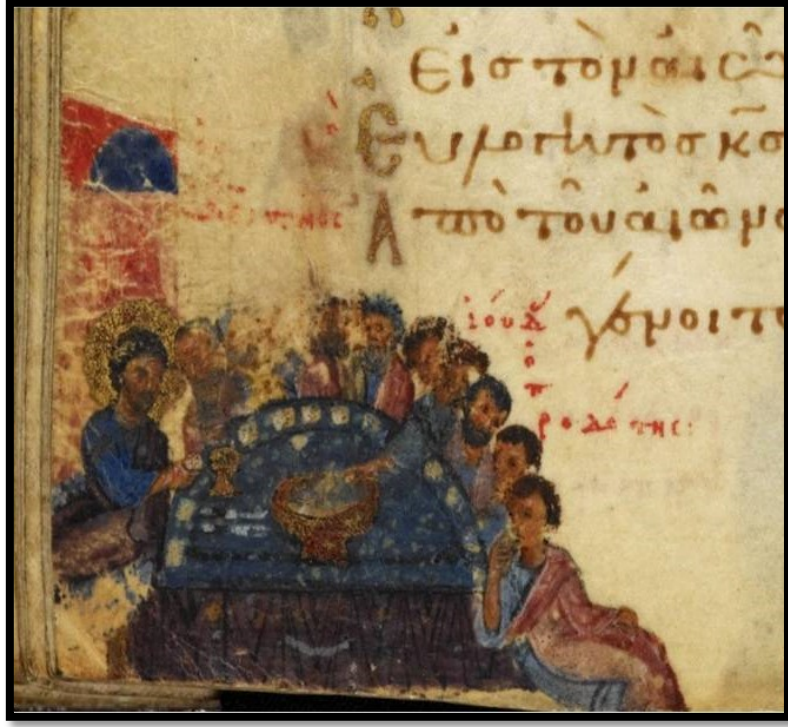 Εἰς τὸν αἰῶ
Εὐλογητὸς κ̅ς̅
Ἀπὸ τοῦ αἰῶνο
ἰούδ
γένοιτο
ὁ
π
ροδότης